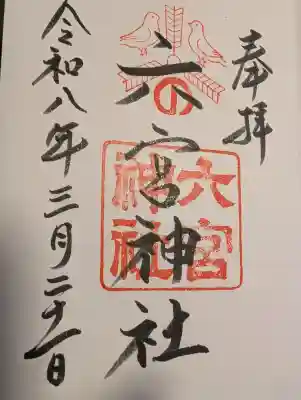 奉拝
六宮神社
の
六宮
神社
令和八年三月二十一日